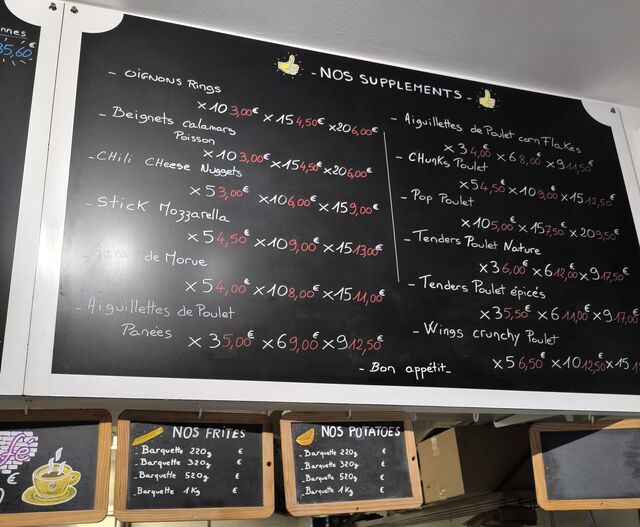 nnes
35,60 €
- NOS SUPPLEMENTS -
- OIGNONS RiNgs
x10 3,00€ x15 4,50€ x20 6,00€
- Beignets calamars
Poisson
x10 3,00€ x15 4,50€ x20 6,00€
- CHili CHeese Nuggets
x5 3,00€ x10 6,00€ x15 9,00€
- Stick Mozzarella
x5 4,50€ x10 9,00€ x15 13,00€
de Morue
x5 4,00€ x10 8,00€ x15 11,00€
- Aiguillettes de Poulet
Panées
x3 5,00€ x6 9,00€ x9 12,50€
- Aiguillettes de Poulet corn Flakes
x3 4,00€ x6 8,00€ x9 11,50€
- CHunks Poulet
x5 4,50€ x10 9,00€ x15 12,50€
- Pop Poulet
x10 5,00€ x15 7,50€ x20 9,50€
- Tenders Poulet Nature
x3 6,00€ x6 12,00€ x9 17,50€
- Tenders Poulet épicés
x3 5,50€ x6 11,00€ x9 17,00€
- Wings crunchy Poulet
x5 6,50€ x10 12,50€ x15
- Bon appétit -
fé
NOS FRITES
- Barquette 220g €
- Barquette 320g €
- Barquette 520g €
- Barquette 1Kg €
NOS POTATOES
- Barquette 220g €
- Barquette 320g €
- Barquette 520g €
- Barquette 1Kg €